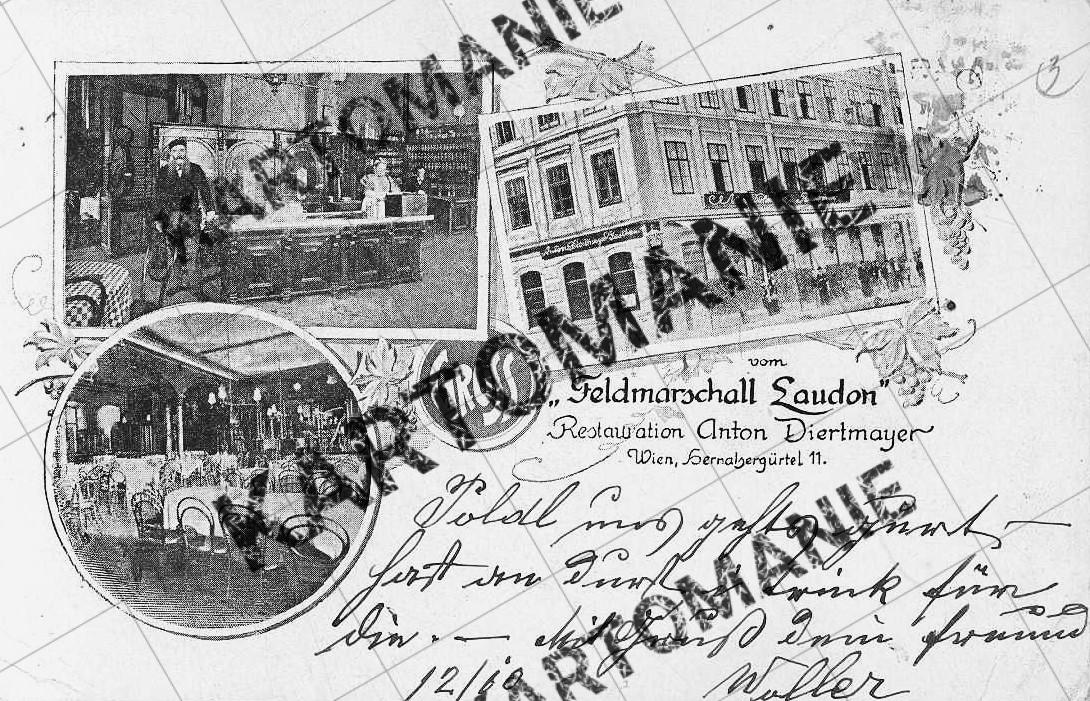 KARTOMANIE
KARTOMANIE
KARTOMANIE
3
GRUSS
vom
„Feldmarschall Laudon"
Restauration Anton Diertmayer
Wien, Hernalsergürtel 11.
Poldl uns gehts guat –
hast an Durst i trink für
die. – Mit Gruß dein Freund
12/10 Woller